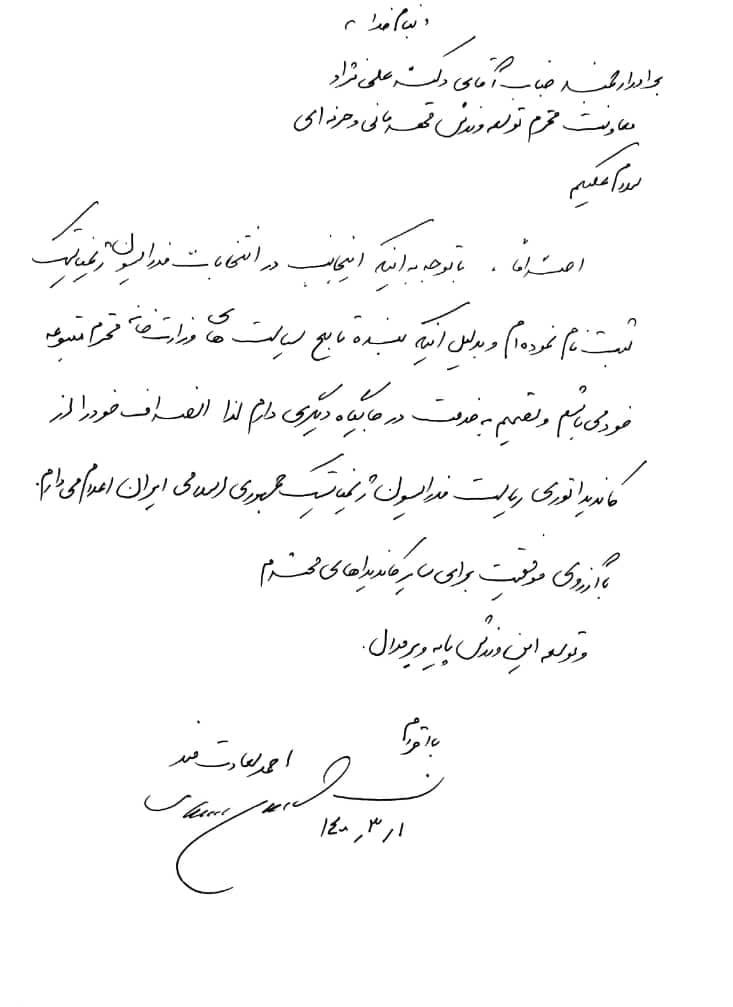 « بنام خدا »
برادر ارجمند جناب آقای دکتر علی نژاد
معاونت محترم توسعه ورزش قهرمانی و حرفه ای
سلام علیکم
احتراماً، با توجه به اینکه اینجانب در انتخابات فدراسیون ژیمناستیک
ثبت نام نموده ام و بدلیل اینکه بنده تابع سیاست های وزارت خانه محترم متبوعه
خود می باشم و تصمیم به خدمت در جایگاه دیگری دارم لذا انصراف خود را از
کاندیداتوری ریاست فدراسیون ژیمناستیک جمهوری اسلامی ایران اعلام می دارم.
با آرزوی موفقیت برای سایر کاندیداهای محترم
و توسعه این ورزش پایه و پر مدال.
با احترام
احمد سعادت مند
۱۴۰۰/۳/۱